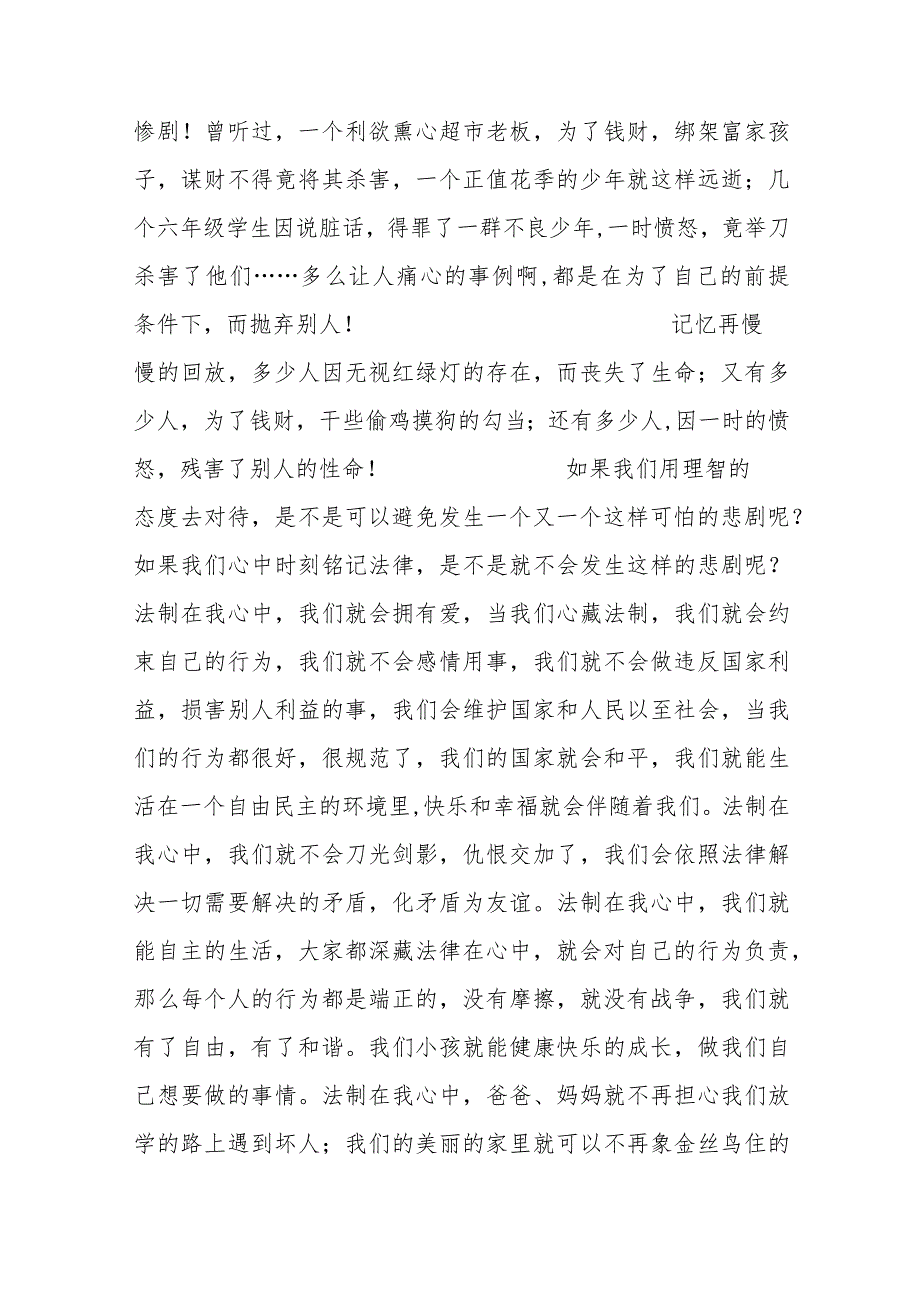 惨剧！曾听过，一个利欲熏心超市老板，为了钱财，绑架富家孩
子，谋财不得竟将其杀害，一个正值花季的少年就这样远逝；几
个六年级学生因说脏话，得罪了一群不良少年,一时愤怒，竟举刀
杀害了他们……多么让人痛心的事例啊,都是在为了自己的前提
条件下，而抛弃别人！ 记忆再慢
慢的回放，多少人因无视红绿灯的存在，而丧失了生命；又有多
少人，为了钱财，干些偷鸡摸狗的勾当；还有多少人,因一时的愤
怒，残害了别人的性命！ 如果我们用理智的
态度去对待，是不是可以避免发生一个又一个这样可怕的悲剧呢？
如果我们心中时刻铭记法律，是不是就不会发生这样的悲剧呢？
法制在我心中，我们就会拥有爱，当我们心藏法制，我们就会约
束自己的行为，我们就不会感情用事，我们就不会做违反国家利
益，损害别人利益的事，我们会维护国家和人民以至社会，当我
们的行为都很好，很规范了，我们的国家就会和平，我们就能生
活在一个自由民主的环境里,快乐和幸福就会伴随着我们。法制在
我心中，我们就不会刀光剑影，仇恨交加了，我们会依照法律解
决一切需要解决的矛盾，化矛盾为友谊。法制在我心中，我们就
能自主的生活，大家都深藏法律在心中，就会对自己的行为负责，
那么每个人的行为都是端正的，没有摩擦，就没有战争，我们就
有了自由，有了和谐。我们小孩就能健康快乐的成长，做我们自
己想要做的事情。法制在我心中，爸爸、妈妈就不再担心我们放
学的路上遇到坏人；我们的美丽的家里就可以不再象金丝鸟住的